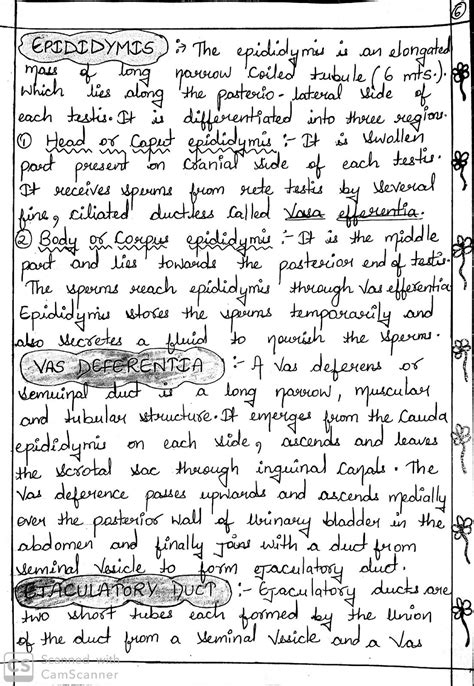 6
EPIDIDYMIS :- The epididymis is an elongated
mass of long narrow coiled tubule (6 mts.).
which lies along the posterio-lateral side of
each testis. It is differentiated into three region.
① Head or Caput epididymis :- It is swollen
part present on cranial side of each testis.
It receives sperms from rete testis by several
fine, ciliated ductless called Vasa efferentia.
② Body or Corpus epididymis :- It is the middle
part and lies towards the posterior end of testis.
The sperms reach epididymis through vas efferentia
Epididymis stores the sperms temporarily and
also secretes a fluid to nourish the sperms.
VAS DEFERENTIA :- A Vas deferens or
seminal duct is a long narrow, muscular
and tubular structure. It emerges from the Cauda
epididymis on each side, ascends and leaves
the scrotal sac through inguinal Canals. The
Vas deference passes upwards and ascends medially
over the posterior wall of urinary bladder in the
abdomen and finally joins with a duct from
seminal vesicle to form ejaculatory duct.
EJACULATORY DUCT :- Ejaculatory ducts are
two short tubes each formed by the union
of the duct from a seminal vesicle and a Vas
CS Scanned with
CamScanner